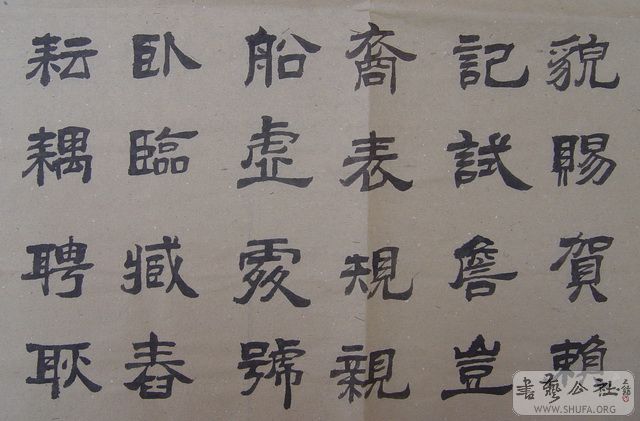 貌賜賀賴
記試詹豈
裔表規親
船虛號
臥臨臧舂
耘耦聘耿
書藝公社
WWW.SHUFA.ORG